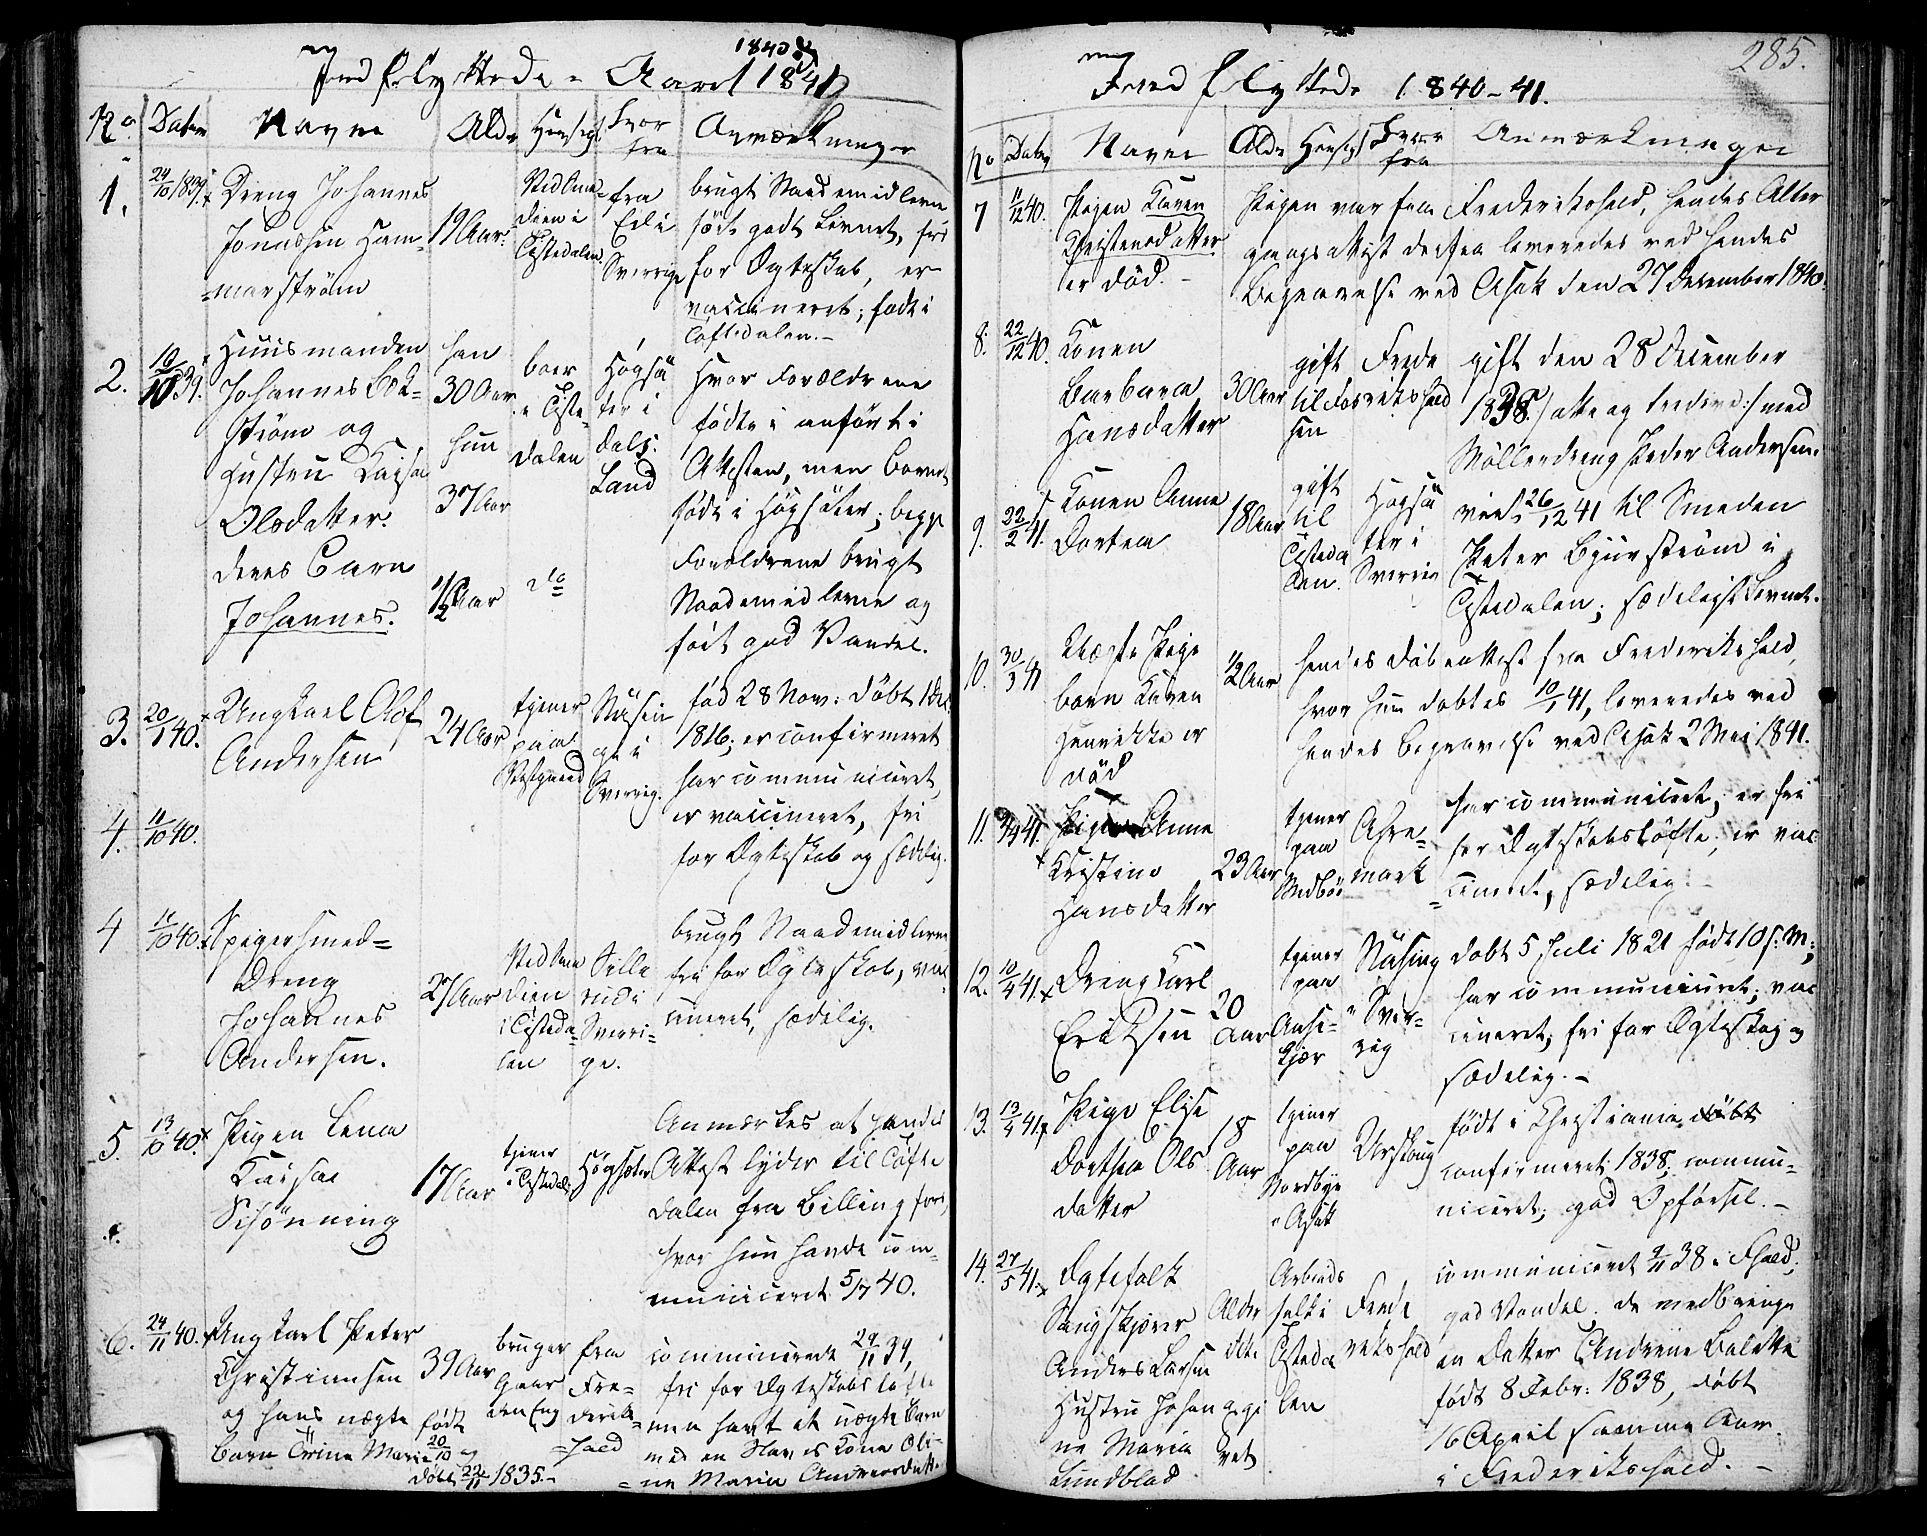 Indflyttede - Aaret 1840 og 1841
No. Datum Navne Alder Hensigt Hvor fra Anmærkninger
1. 24/10 1839. Dreng Johannes
Jonassen Ham-
marström
19 Aar.
Sted Sme-
dien i
Tistedalen
fra
Ed i
Sverrige
brugt Naademidlerne
födt godt Levnet, fri
for Ægteskab, er
vaccineret; födt i
Töftedalen.-
2. 10/10 39. Huusmanden
Johannes Bek-
ström og
Hustru Kaisa
Olsdatter.
deres Barn
Johannes.
han
30 Aar
hun
37 Aar
1/2 Aar
boer
i Tiste-
dalen
do
Högsä
ter i
dals
Land
Hvor Forældrene
födte i anfört i
Attesten, men Barnet
födt i Högsäter; begge
Forældrene brugt
Naademidlerne og
fört god Vandel.
3. 20/1 40. Ungkarl Olof
Andersen
24 Aar
tjener
paa
Vestgaard
Näsin
ge i
Sverrig.
fød 28 Nov: döbt 1 De
1816; er confirmeret
har communiceret,
er vaccineret, fri
for Ægteskab og sædelig.
4. 11/10 40.
4 11/10 40. Spigersmed-
Dreng
Johannes
Andersen.
27 Aar
Sted Sme
dien
i Tisteda
len
Sille
rud i
Sverri-
ge.
brugt Naademidlerne
fri for Ægteskab, vac
cineret, sædelig.
5. 13/10 40. Pigen Lena
Kaisa
Sisönning
17 Aar
tjener
i Tistedalen
Högsäter
Anmærkes at hendes
Attest lyder til Töfte
dalen fra Billingfors,
hvor hun havde com-
municeret 5/7 40.
6. 24/11 40. Ungkarl Peter
Christiansen
og hans uægte
Barn Trine Marie
39 Aar
født
20/10 og
döbt 22/11 1835.-
bruger
Gaar
den Eng
fra
Fre-
deriks-
hald
communiceret 29/11 39,
fri for Ægteskabs löfte
men havt et uægte Barn
med en Slaves Kone Oli-
ne Maria Andreasdatter
285.
Indflyttede 1840-41.
No Datum Navne Alder Hensigt Hvor fra Anmærkninger
7 11/12 40. Pigen Karen
Christensdatter
er död.-
Pigen var fra Frederikshald, hendes Alter
gangsattest derfra leveredes ved hendes
Begravelse ved Asak den 27 December 1840.
8. 22/12 40. Konen
Barbara
Hansdatter
30 Aar
gift
til Fos
sen
Frede
rikshald
gift den 28 December
1838 /: otte og tredive :/ med
Möllerdreng Peder Andersen.
9. 22/2 41. Konen Anne
Dortea
18 Aar
gift
til
Tisteda
len.
Högsä
ter i
Sverrig
viet 26/12 41 til Smeden
Peter Bjurström i
Tistedalen; sædeligt Levnet.
10. 30/3 41 Uægte Pige
barn Karen
Henrikke er
död
1/2 Aar
hendes Döbeattest fra Frederikshald,
hvor hun döbtes 10/1 41, leveredes ved
hendes Begravelse ved Asak 2 Mai 1841.
11. 3/4 41. Pigen Anne
Kristine
Hansdatter
23 Aar
tjener
paa
Vedböe
Ahre-
mark
har communiceret; er fri
for Ægteskabslöfte; er vac
cineret, sædelig.-
12. 10/4 41. Dreng Karl
Eriksen
20
Aar
tjener
paa
Anse-
kjær
Näsing
i Sver-
rig
döbt 5 Juli 1821 födt 10 s: M;
har communiceret; vac
cineret; fri for Ægteskab og
sædelig.-
13. 13/4 41. Pige Elise
Dorthea Ols
datter
18
Aar
tjener
paa
Nordbye
i Asak
Urskoug
födt i Christiania, döbt
confirmeret 1838; commu-
niceret; god Opförsel.-
14. 27/5 41. Ægtefolk
Saugskjærer
Anders Larsen
Hustru Johan
ne Maria
Lundblad
Alder
ikke
opgi
vet
Arbeids
folk i
Tisteda
len
Frede
rikshald
communiceret 4/11 38 i Fhald;
god Vandel. de medbringe
en Datter Andrine Bolette
födt 8 Febr: 1838, döbt
16 April samme Aar
i Frederikshald.-